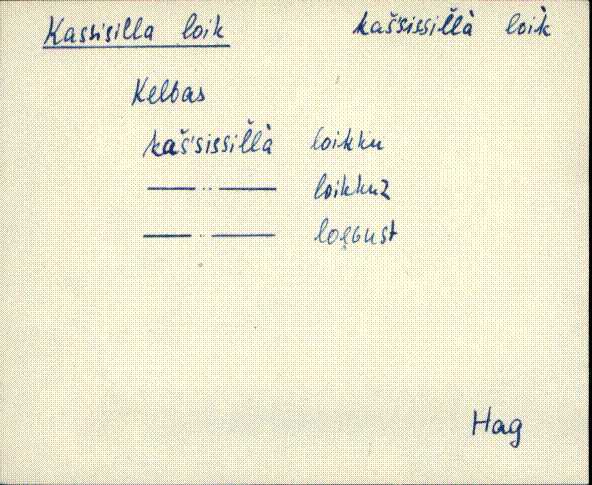 Kassisilla loik kaš̀sissil̆l̆à loìk
Kelbas
kaš̀sissil̆l̆à loikku
—— „ —— loikkuz
—— „ —— loęGust
Hag